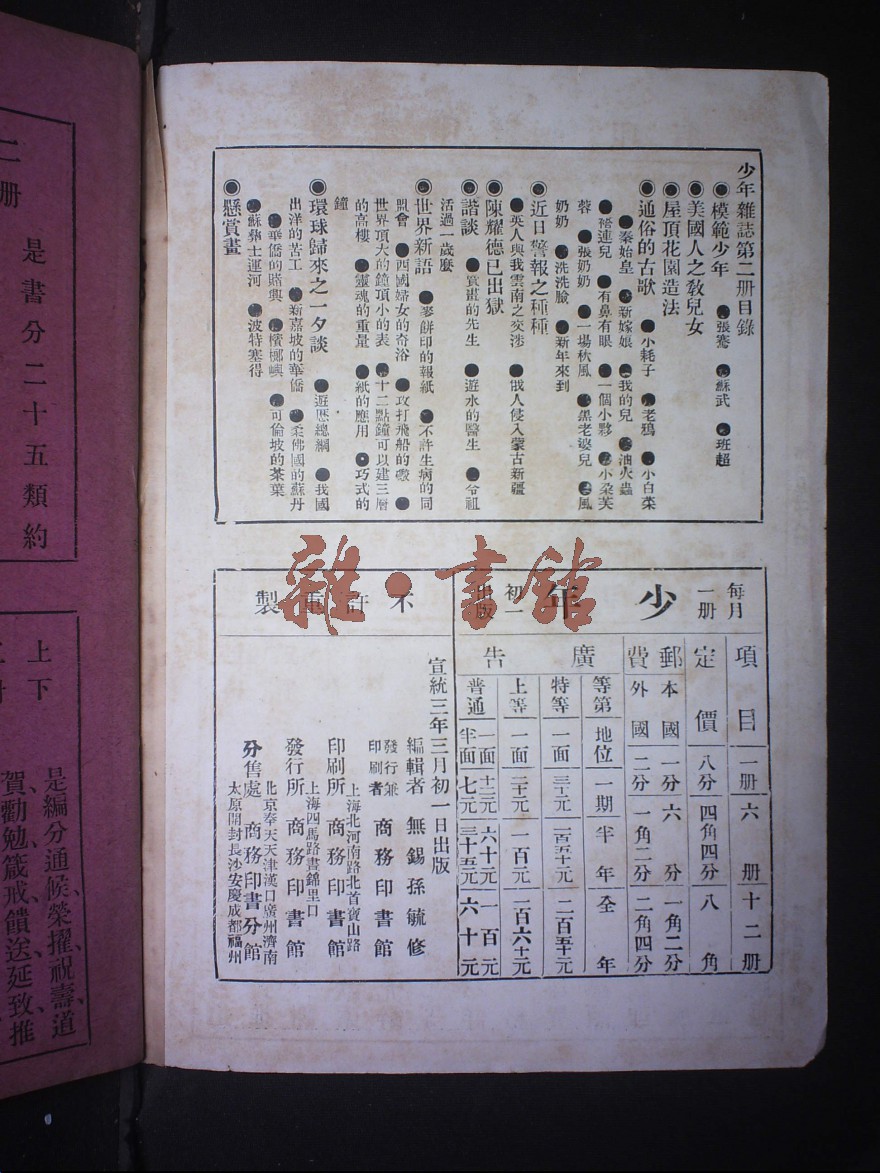 少年雜誌第二册目錄
◉模範少年 ●張騫 ●蘇武 ●班超
◉美國人之敎兒女
◉屋頂花園造法
◉通俗的古歌 ●小耗子 ●老鴉 ●小白菜
●秦始皇 ●新嫁娘 ●我的兒 ●油火蟲
●褡連兒 ●有鼻有眼 ●一個小夥 ●小朶芙
蓉 ●張奶奶 ●一場秋風 ●黑老婆兒 ●風
奶奶 ●洗洗臉 ●新年來到
◉近日警報之種種
●英人與我雲南之交涉 ●俄人侵入蒙古新疆
◉陳耀德已出獄
◉諧談 ●買畫的先生 ●遊水的醫生 ●令祖
活過一歲麼
◉世界新語 ●麥餅印的報紙 ●不許生病的同
盟會 ●西國婦女的奇浴 ●攻打飛船的礮 ●
世界頂大的鐘頂小的表 ●十二點鐘可以建三層
的高樓 ●靈魂的重量 ●紙的應用 ●巧式的
鐘
◉環球歸來之一夕談 ●遊歷總綱 ●我國
出洋的苦工 ●新嘉坡的華僑 ●柔佛國的蘇丹
●華僑的賭興 ●檳榔嶼 ●可倫坡的茶葉
●蘇彝士運河 ●波特塞得
◉懸賞畫
每月一册
少年
初一出版
項目 一册 六册 十二册
定價 八分 四角四分 八角
郵費 本國 一分 六分 一角二分
外國 二分 一角二分 二角四分
廣告
等第 地位 一期 半年 全年
特等 一面 三十元 一百五十元 二百五十元
上等 一面 二十元 一百元 一百六十元
普通 一面 十二元 六十元 一百元
半面 七元 三十五元 六十元
不許重製
宣統三年三月初一日出版
編輯者 無錫孫毓修
發行兼印刷者 商務印書館
上海北河南路北首寶山路
印刷所 商務印書館
上海四馬路晝錦里口
發行所 商務印書館
北京奉天天津漢口廣州濟南
分售處 商務印書分館
太原開封長沙安慶成都福州
雜·書館
二册
是書分二十五類約
上下
是編分通候、榮擢、祝壽、道
賀、勸勉、箴戒、饋送、延致、推